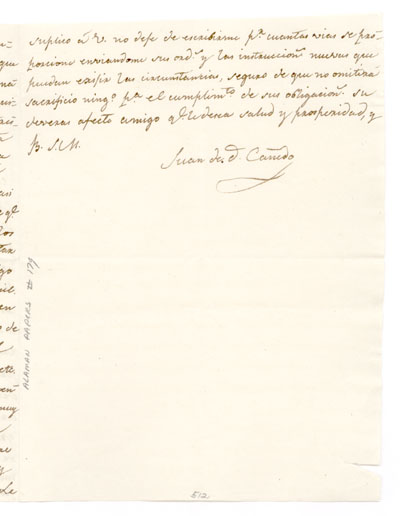 suplico a V. no deje de escribirme pr. cuantas vias se pro-
porcione enviandome sus ords. y las instruccions. nuevas que
puedan exijir las circunstancias, seguro de que no omitirá
sacrificio ningo. pa. el cumplimto. de sus obligacions. su
deveras afecto amigo qe. le desea salud y prosperidad, y
B. S. M.
Juan de D. Cañedo
ALAMÁN PAPERS # 179
512